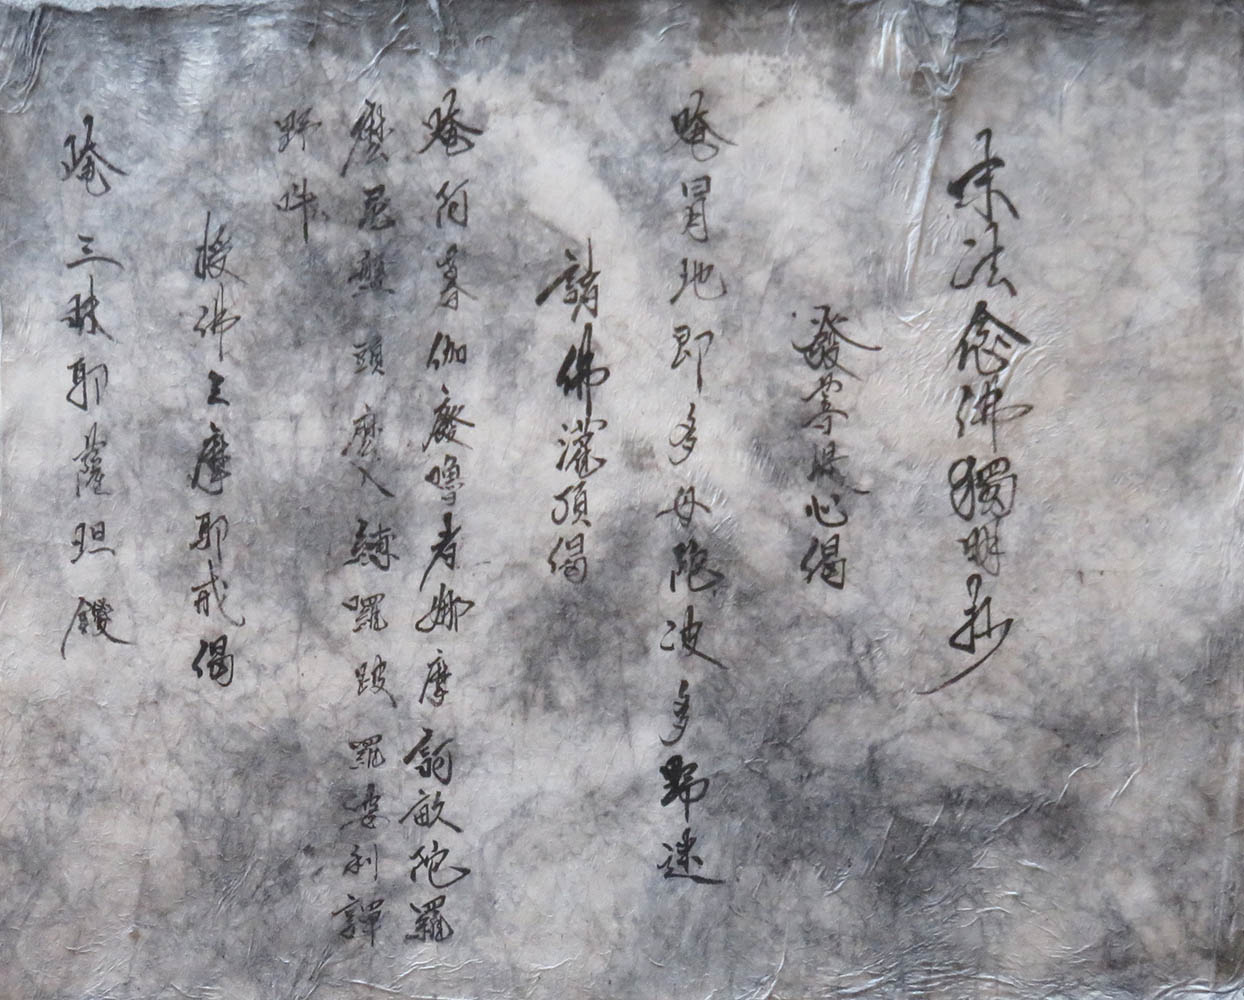 末法念佛獨明抄
發菩提心偈
唵冒地即多母陀波多野迷
請佛灌頂偈
唵何暮伽廢嚕者娜摩訶畝陀羅
麽尼盤頭麽入縛囉跛羅婆利譚
野吽
授佛三摩耶戒偈
唵三昧耶薩怛鑁